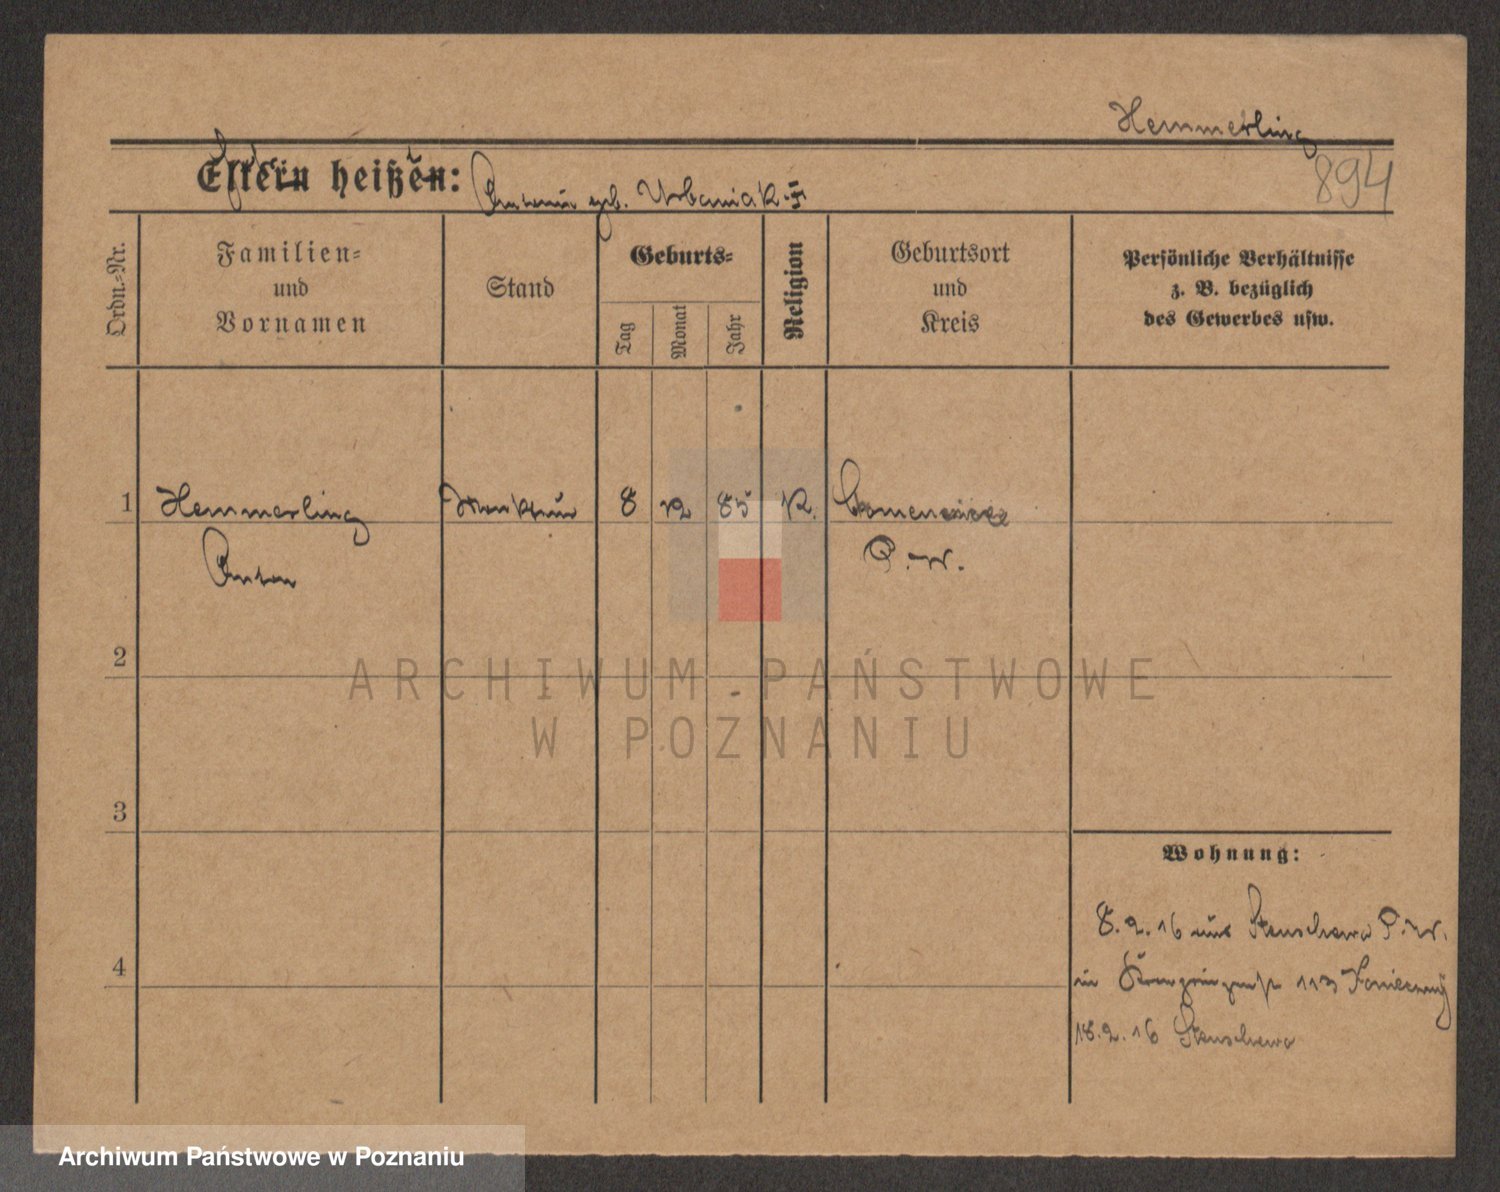 Hemmerling
894
Eltern heißen: Antonie geb. Urbaniak
Ordn.-Nr.
Familien-
und
Vornamen
Stand
Geburts-
Tag
Monat
Jahr
Religion
Geburtsort
und
Kreis
Persönliche Verhältnisse
z. B. bezüglich
des Gewerbes usw.
1 Hemmerling 8 12 85 K.
Anton P.-W.
2
3
4
Wohnung:
8.2.16 aus Stenschewo P.-W.
in 113
18.2.16 Stenschewo
ARCHIWUM PAŃSTWOWE
W POZNANIU
Archiwum Państwowe w Poznaniu